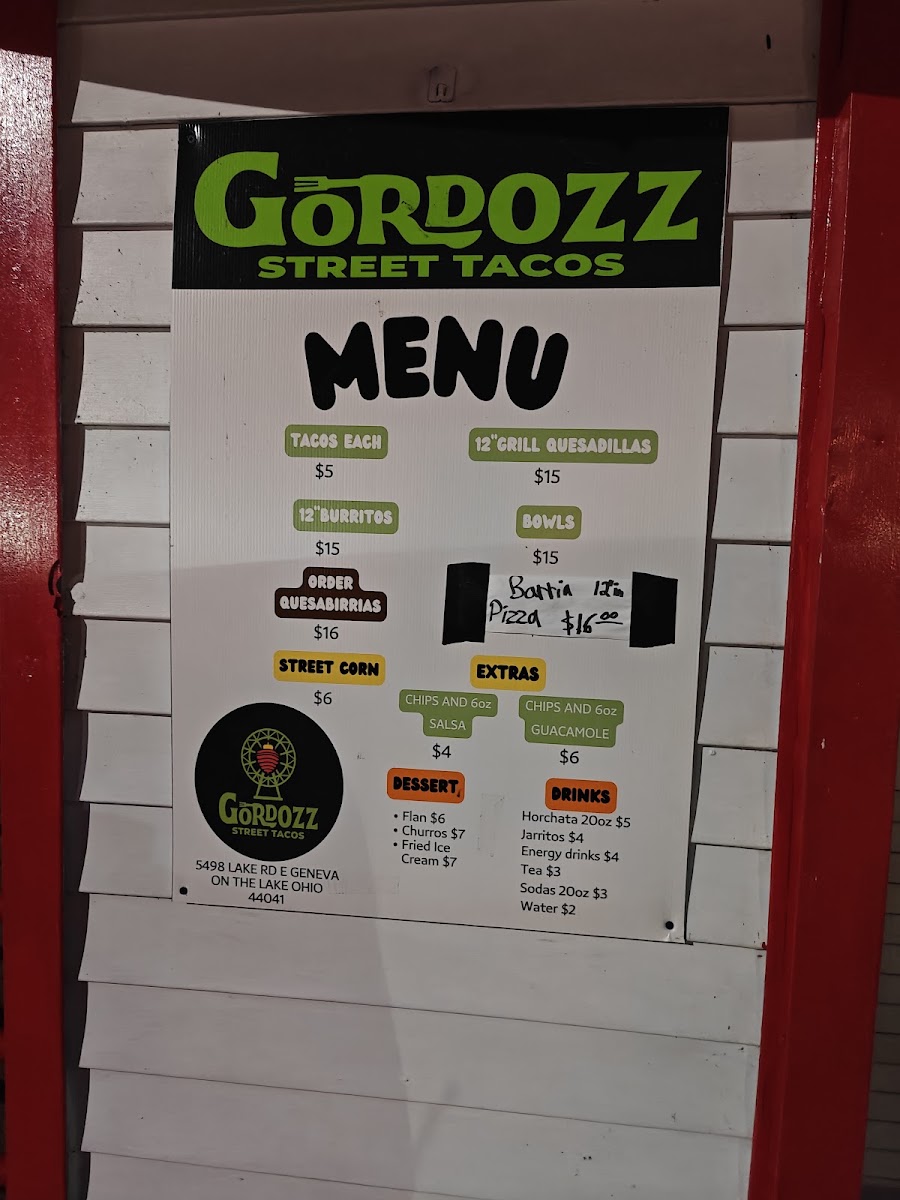 GORDOZZ
STREET TACOS
MENU
TACOS EACH
$5
12"GRILL QUESADILLAS
$15
12"BURRITOS
$15
BOWLS
$15
ORDER
QUESABIRRIAS
$16
Barria 12in
Pizza $16.00
STREET CORN
$6
EXTRAS
CHIPS AND 6oz
SALSA
$4
CHIPS AND 6oz
GUACAMOLE
$6
DESSERT
• Flan $6
• Churros $7
• Fried Ice
Cream $7
DRINKS
Horchata 20oz $5
Jarritos $4
Energy drinks $4
Tea $3
Sodas 20oz $3
Water $2
GORDOZZ
STREET TACOS
5498 LAKE RD E GENEVA
ON THE LAKE OHIO
44041